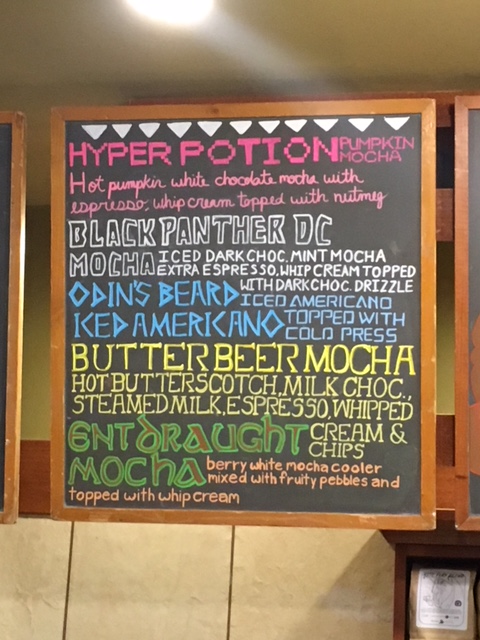 HYPER POTION PUMPKIN MOCHA
Hot pumpkin white chocolate mocha with
espresso, whip cream topped with nutmeg
BLACK PANTHER DC
MOCHA ICED DARK CHOC. MINT MOCHA
EXTRA ESPRESSO, WHIP CREAM TOPPED
WITH DARK CHOC. DRIZZLE
ODIN'S BEARD
ICED AMERICANO
ICED AMERICANO
TOPPED WITH
COLD PRESS
BUTTER BEER MOCHA
HOT BUTTERSCOTCH, MILK CHOC.,
STEAMED MILK, ESPRESSO, WHIPPED
CREAM &
CHIPS
ENT DRAUGHT
MOCHA
berry white mocha cooler
mixed with fruity pebbles and
topped with whip cream